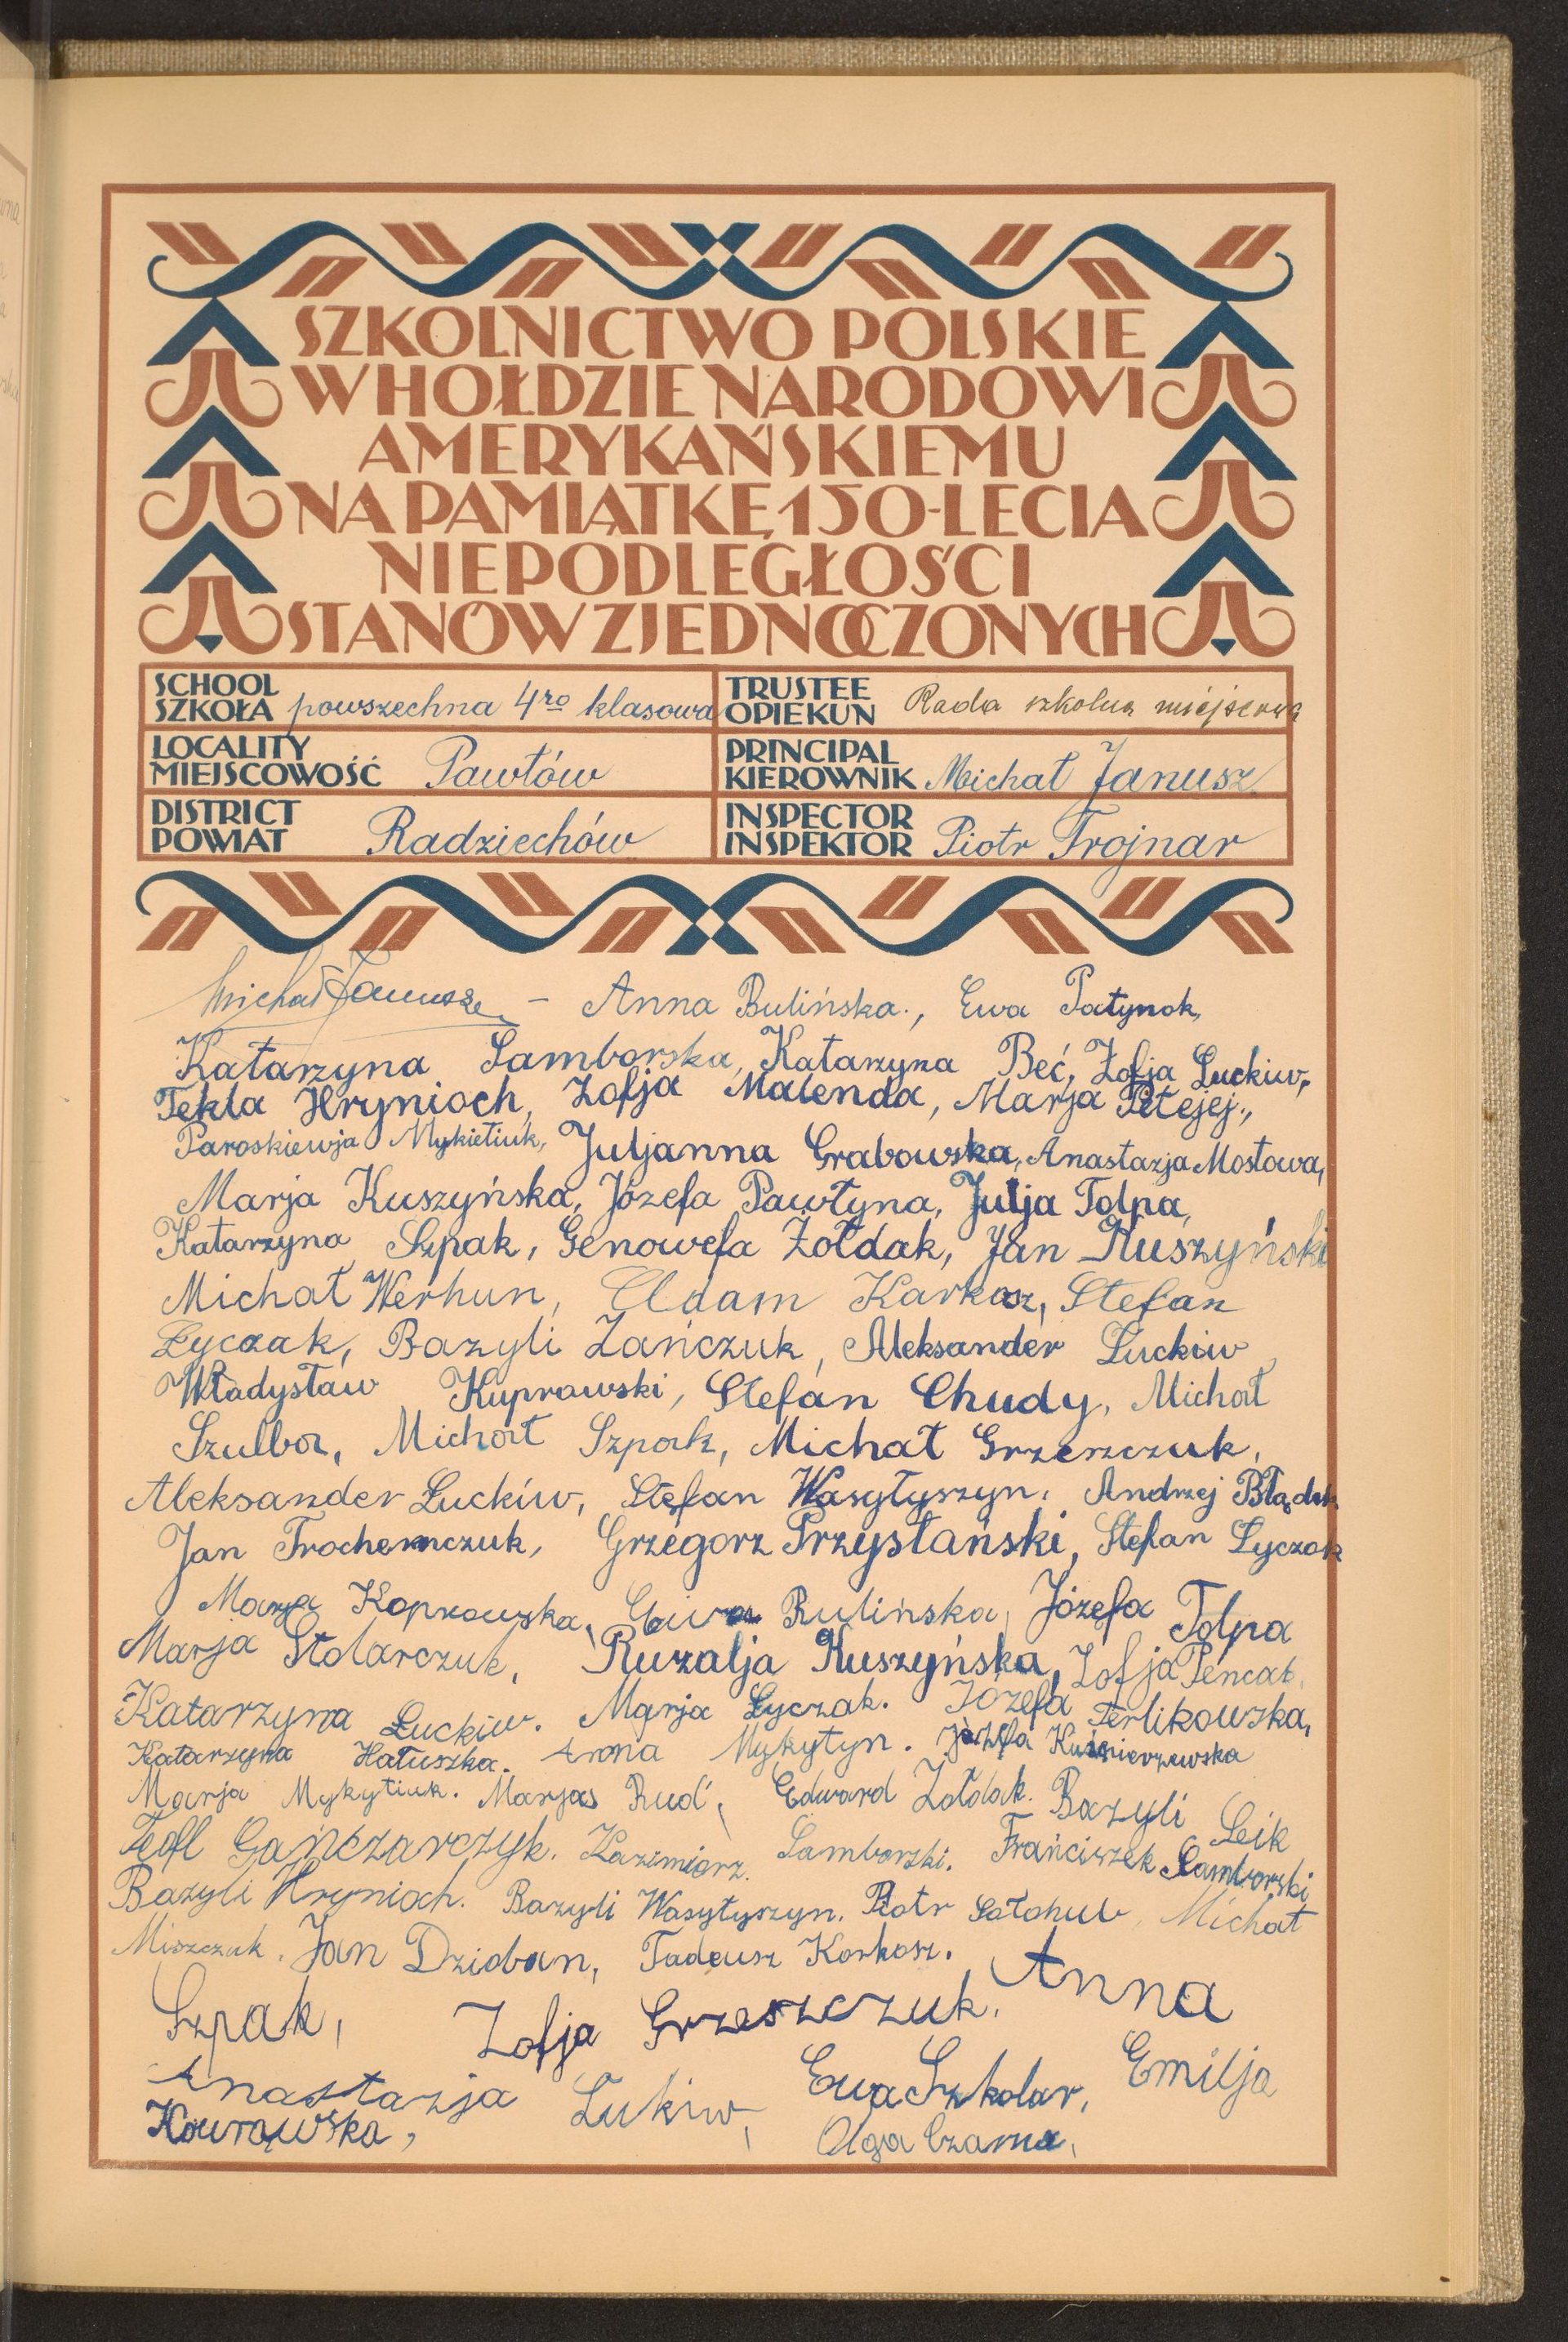 SZKOLNICTWO POLSKIE
W HOŁDZIE NARODOWI
AMERYKAŃSKIEMU
NA PAMIĄTKĘ 150-LECIA
NIEPODLEGŁOŚCI
STANÓW ZJEDNOCZONYCH
SCHOOL
SZKOŁA powszechna 4ro klasowa
TRUSTEE
OPIEKUN Rada szkolna miejscowa
LOCALITY
MIEJSCOWOŚĆ Pawłów
PRINCIPAL
KIEROWNIK Michał Janusz
DISTRICT
POWIAT Radziechów
INSPECTOR
INSPEKTOR Piotr Trojnar
Michał Janusz – Anna Bulińska., Ewa Patynok,
Katarzyna Samborska, Katarzyna Beć, Zofja Łuckiw,
Tekla Hrynioch, Zofja Malenda, Marja Petejej.,
Paraskiewja Mykietiuk, Juljanna Grabowska, Anastazja Mostowa,
Marja Kuszyńska, Józefa Pawłyna, Julja Tołpa,
Katarzyna Szpak, Genowefa Żołdak, Jan Kuszyński
Michał Werhun, Adam Karkosz, Stefan
Łyczak, Bazyli Zańczuk, Aleksander Łuckiw
Władysław Kuprowski, Stefan Chudy, Michał
Szulba, Michał Szpak, Michał Grzeszczuk,
Aleksander Łuckiw, Stefan Wasyłyszyn, Andrzej Błądek
Jan Trochemczuk, Grzegorz Przystański, Stefan Łyczak
Marja Koprowska, Ewa Bulińska, Józefa Tołpa
Marja Stolarczuk, Ruzalja Kuszyńska, Zofja Pencak,
Katarzyna Łuckiw. Marja Łyczak. Józefa Terlikowska,
Katarzyna Hałuszka. Anna Mykytyn. Józefa Kuśnierzewska
Marja Mykytiuk. Marja Rud', Edward Żołdak. Bazyli Leik
Teofl Gańczarczyk. Kazimierz Samborski. Franciszek Samborski
Bazyli Hrynioch. Bazyli Wasyłyszyn. Piotr Sałahub, Michał
Miszczuk. Jan Dzioban, Tadeusz Korkosz. Anna
Szpak, Zofja Grzeszczuk.
Anastazja Łukiw, Ewa Szkolar, Emilja
Kourowska, Olga Czarna,